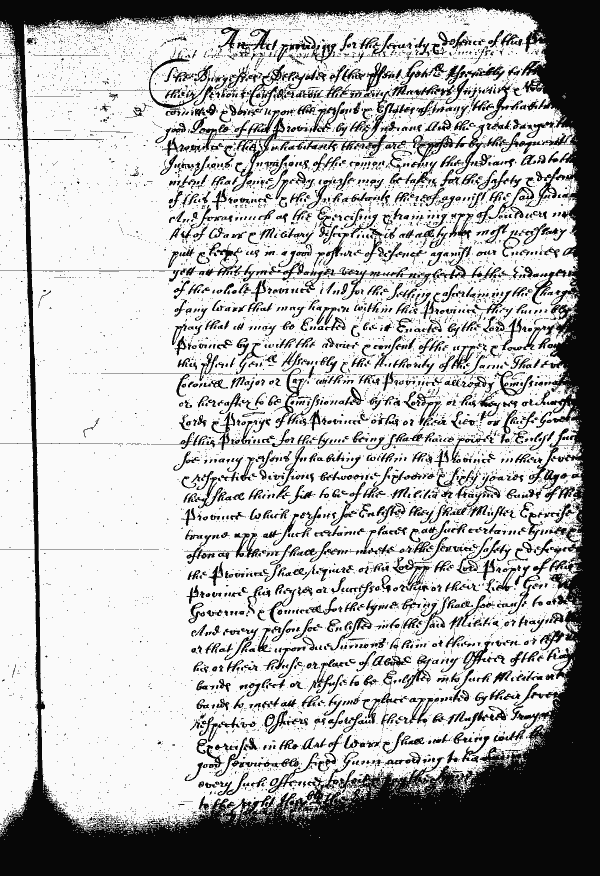 An Act providing for the security & defence of this
The Burgesses & Delegates of this psent Genll Assembly
their serious Consideracon the many Murthers Injuryes &
comitted & done upon the persons & Estates of many the Inhabitants
good People of this Province by the Indians And the great danger
Province & the Inhabitants thereof are exposed to by the frequent
Incursions & Invasions of the comon Enemy the Indians And to the
intent that some speedy course may be taken for the safety & defence
of this Province & the Inhabitants thereof against the said Indians
And forasmuch as the Exercising & trayning upp of Souldiers
Art of Warr & Military discipline is att all tymes most necessary
putt & keepe us in a good posture of defence against our Enemies
yett att this tyme of danger very much neglected to the Endangering
of the whole Province And for the setling & ascertaining the Charge
of any Warr that may happen within this Province they humbly
pray that itt may be Enacted & be it Enacted by the Lord Propry of
Province by & with the advice & consent of the upper & lower house
this psent Genll Assembly & the Authority of the Same That every
Colonell Major or Capt within this Province allready Comissionated
or hereafter to be Comissionated by his Lordpp or his heyres or
Lords & Proprys of this Province or his or their Lievt or Chiefe Governor
of this Province for the tyme being shall have power to Enlist such
soe many persons Inhabiting within this Province in their several
& respective divisions betweene sixteene & sixty yeares of Age
they shall thinke fitt to be of the Militia or trayned bands of this
Province Which persons soe Enlisted they shall Muster Exercise
trayne upp att such certaine places & att such certaine tymes
often as to them shall seem meete or the service safety & defence
the Province shall require or his Lordpp the Lord Propry of this
Province his heyres or Successors or his or their Lievt Genll
Governor & Councell for the tyme being shall soe cause to
And every person soe Enlisted into the said Militia or trayned
or that shall upon due Sumons to him or them given or left
his or their house or place of Abode by any Officer of the
bands neglect or refuse to be Enlisted into such Militia
bands to meet att the tyme & place appointed by their severall
respective Officers as aforesaid there to be Mustered Trayned
Exercised in the Art of Warr & shall not bring with
good serviceable fixed Gunn according to
every such Offence forfeite
to the right